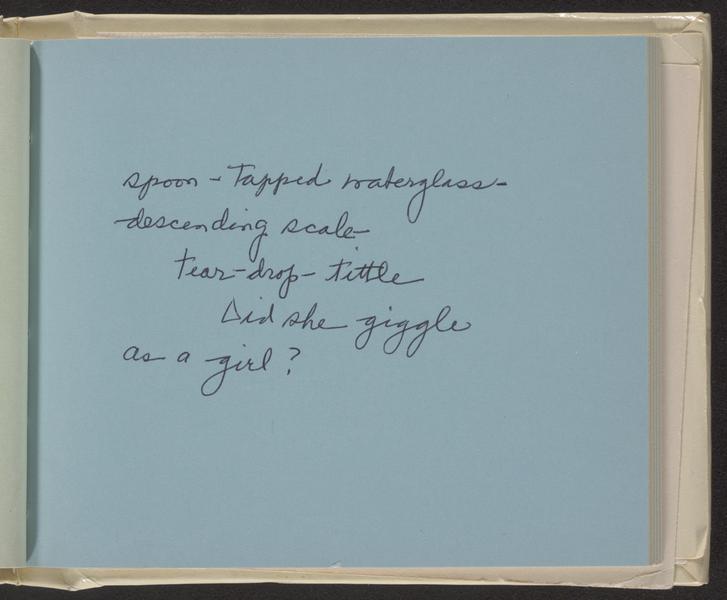 spoon-tapped waterglass-
descending scale-
tear-drop-tittle
Did she giggle
as a girl?